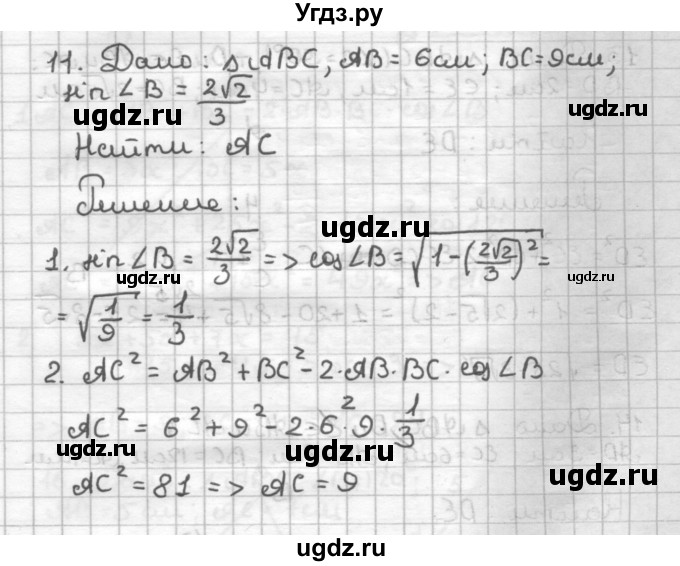 Угдз.ру
11. Дано: △ABC, AB = 6см; BC = 9см;
sin ∠B = 2√2/3
ugdz.ru ugdz.ru
Найти: AC
Решение:
ugdz.ru
1. sin ∠B = 2√2/3 => cos ∠B = √(1 - (2√2/3)²) =
ugdz.ru
= √(1/9) = 1/3
ugdz.ru
2. AC² = AB² + BC² - 2·AB·BC·cos ∠B
AC² = 6² + 9² - 2·6·9·1/3
ugdz.ru ugdz.ru
AC² = 81 => AC = 9
ugdz.ru
ugdz.ru